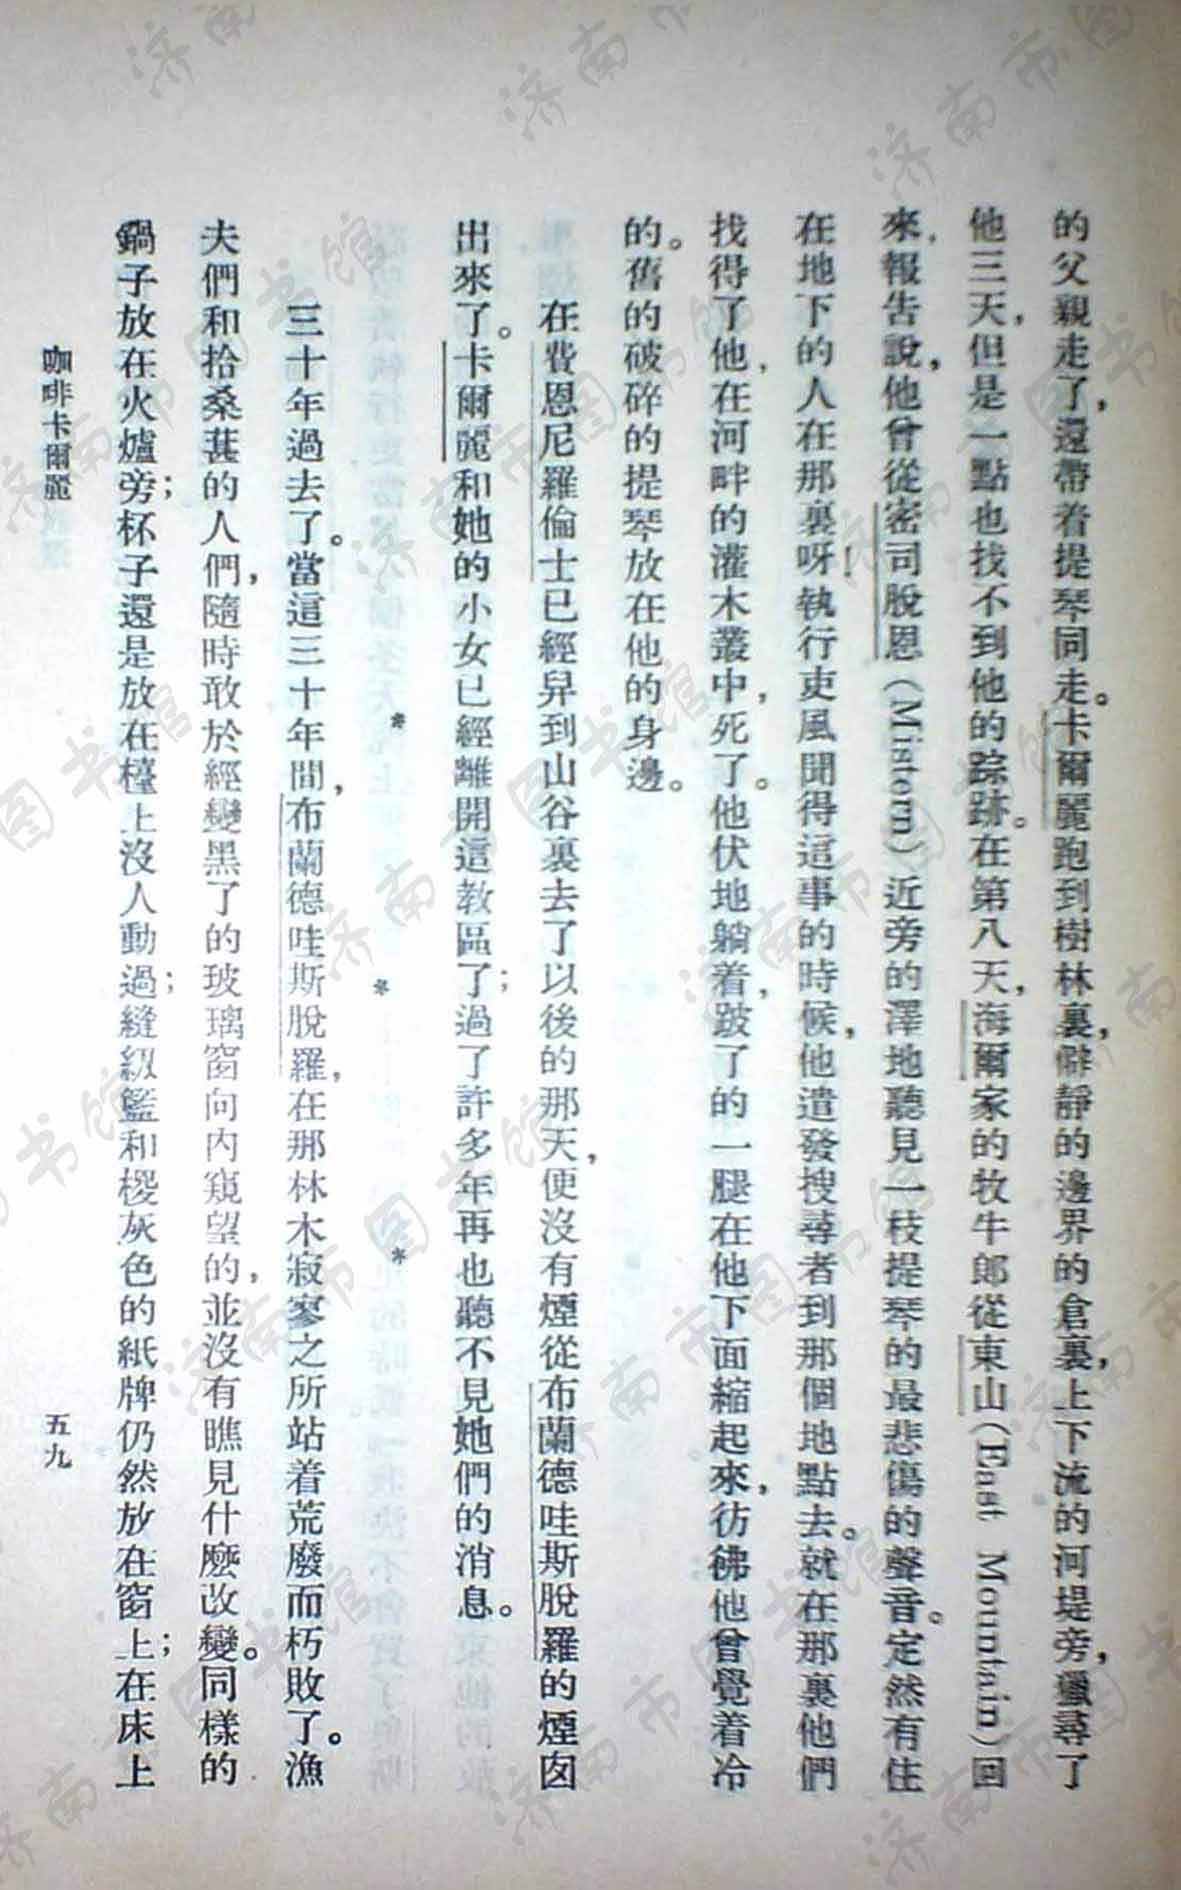 的父親走了，還帶着提琴同走。卡爾麗跑到樹林裏，僻靜的邊界的倉裏，上下流的河堤旁，獵尋了
他三天，但是一點也找不到他的踪跡。在第八天，海爾家的牧牛郎從東山（East Mountain）回
來，報告說，他曾從密司脫恩（Mistorn）近旁的澤地聽見一枝提琴的最悲傷的聲音。定然有住
在地下的人在那裏呀！執行吏風聞得這事的時候，他遣發搜尋者到那個地點去。就在那裏他們
找得了他，在河畔的灌木叢中，死了。他伏地躺着，跛了的一腿在他下面縮起來，彷彿他曾覺着冷
的。舊的破碎的提琴放在他的身邊。
在費恩尼羅倫士已經舁到山谷裏去了以後的那天，便沒有煙從布蘭德哇斯脫羅的煙囪
出來了。卡爾麗和她的小女已經離開這教區了；過了許多年再也聽不見她們的消息。
＊ ＊ ＊
三十年過去了。當這三十年間，布蘭德哇斯脫羅，在那林木寂寥之所站着荒廢而朽敗了。漁
夫們和拾桑葚的人們，隨時敢於經變黑了的玻璃窗向內窺望的，並沒有瞧見什麼改變。同樣的
鍋子放在火爐旁；杯子還是放在檯上沒人動過；縫紉籃和椶灰色的紙牌仍然放在窗上；在床上
咖啡卡爾麗
五九